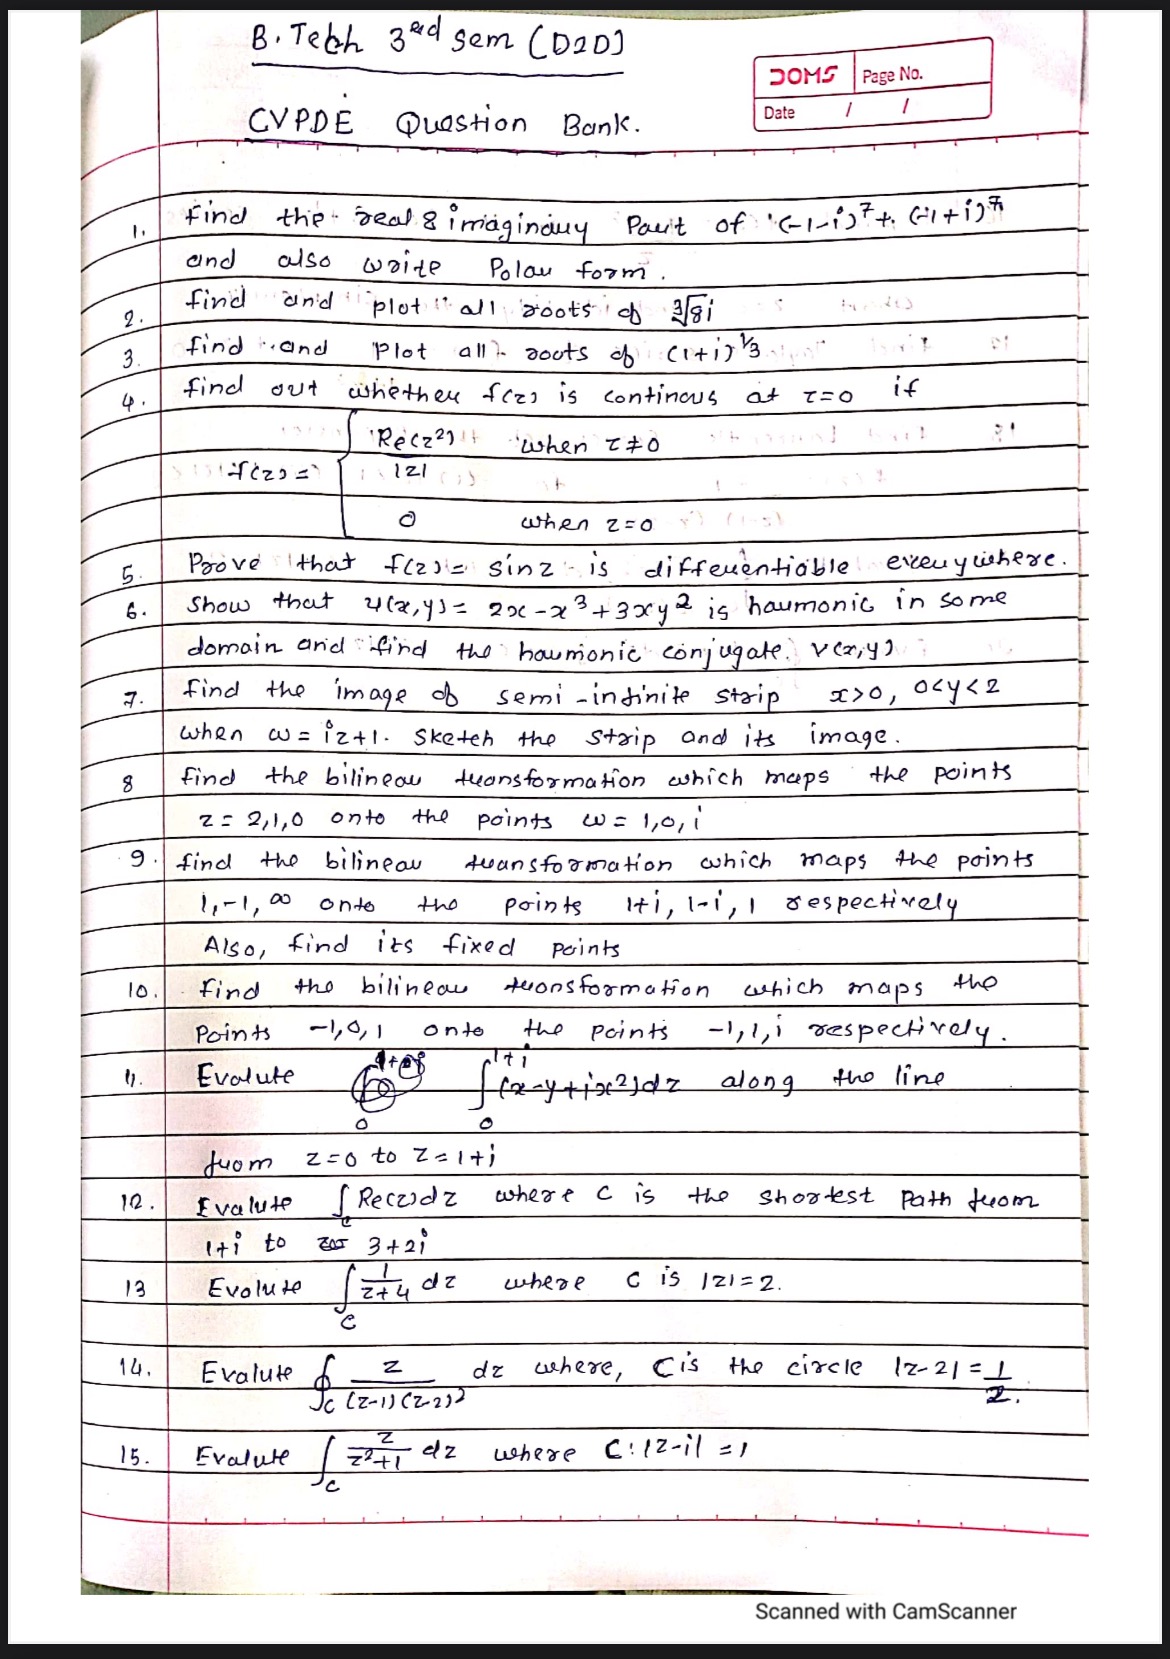 B. Tech 3rd sem (D2D)
DOMS Page No.
Date / /
CVPDE Question Bank.
1. find the real & imaginary Part of (-1-i)⁷ + (-1+i)⁷
and also write Polar form.
2. find and plot all roots of ∛8i
3. find and Plot all roots of (1+i)^1/3
4. find out whether f(z) is continous at z=0 if
f(z) = { Re(z²)/|z| when z≠0
0 when z=0
5. Prove that f(z) = sinz is differentiable everywhere.
6. Show that u(x,y) = 2x-x³+3xy² is harmonic in some
domain and find the harmonic conjugate. v(x,y)
7. find the image of semi-infinite strip x>0, 0<y<2
when w = iz+1. Sketch the strip and its image.
8 find the bilinear transformation which maps the points
z = 2,1,0 onto the points w = 1,0,i
9. find the bilinear transformation which maps the points
1,-1,∞ onto the points 1+i, 1-i, 1 respectively
Also, find its fixed points
10. find the bilinear transformation which maps the
Points -1,0,1 onto the points -1,1,i respectively.
11. Evalute ∫₀^1+i (x-y+ix²)dz along the line
from z=0 to z=1+i
12. Evalute ∫c Re(z)dz where c is the shortest Path from
1+i to 3+2i
13 Evalute ∫c 1/z+4 dz where c is |z|=2.
14. Evalute ∮c z/(z-1)(z-2)² dz where, C is the circle |z-2| = 1/2.
15. Evalute ∫c z/z²+1 dz where C:|z-i| = 1
Scanned with CamScanner